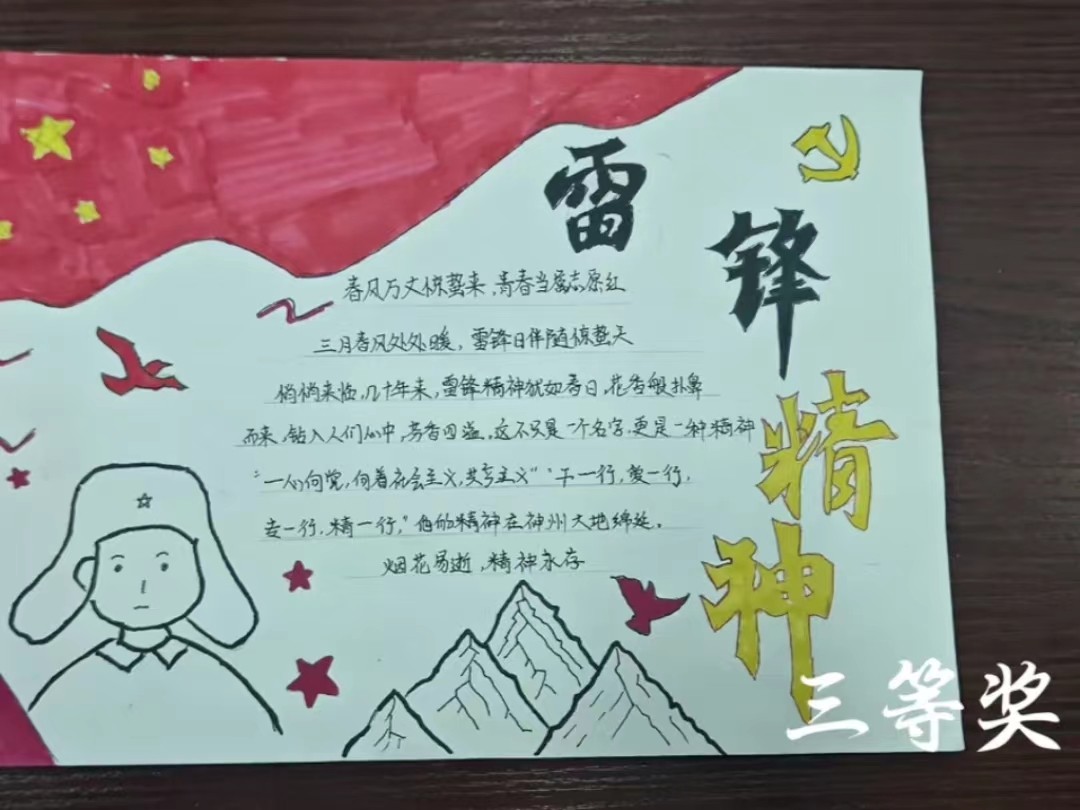 雷锋精神
春风万丈惊蛰来,青春当燃志愿红
三月春风处处暖,雷锋日伴随惊蛰天
悄悄来临,几十年来,雷锋精神犹如春日,花香般扑鼻
而来,钻入人们心中,芳香四溢,这不只是一个名字,更是一种精神
“一心向党,向着社会主义,共产主义”“干一行,爱一行,
专一行,精一行,”他的精神在神州大地绵延。
烟花易逝,精神永存
三等奖